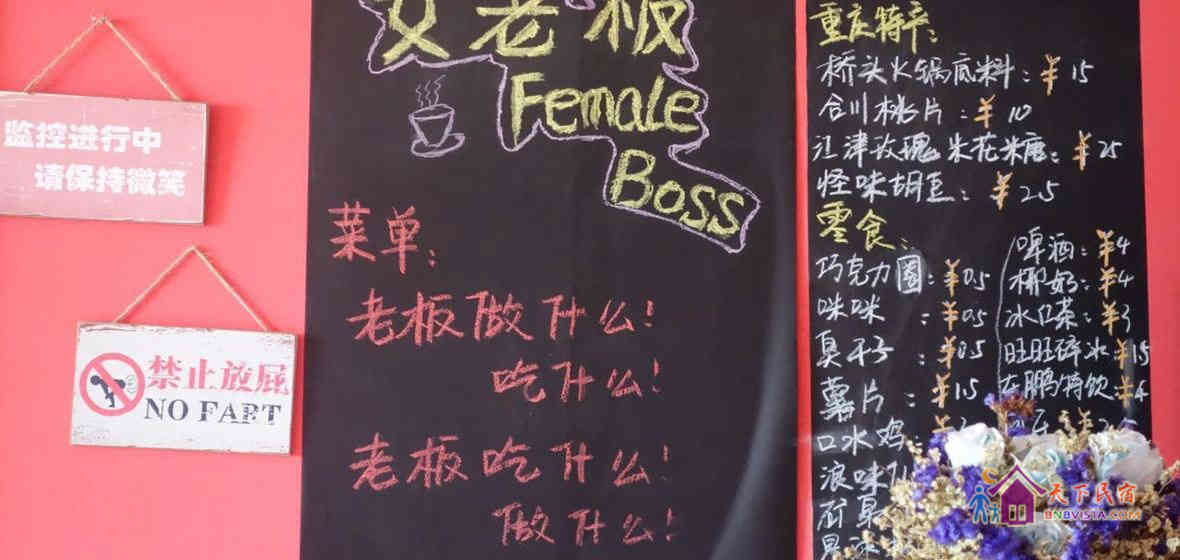 监控进行中
请保持微笑
禁止放屁
NO FART
女老板
Female
Boss
菜单:
老板做什么!
吃什么!
老板吃什么!
做什么!
重庆特产:
桥头火锅底料:¥15
合川桃片:¥10
江津玫瑰米花糖:¥25
怪味胡豆:¥25
零食:
巧克力圈:¥0.5
咪咪:¥0.5
臭干子:¥0.5
薯片:¥15
口水鸡:¥
浪味
啤酒:¥4
椰奶:¥4
冰红茶:¥3
旺旺碎冰¥15
东鹏特饮¥4
天下民宿
BNBVISTA.COM